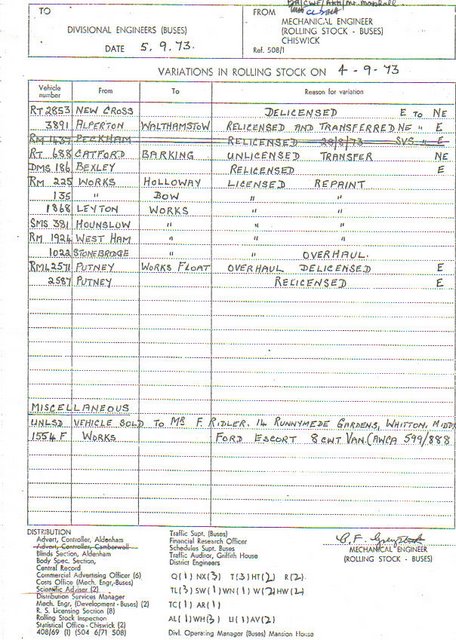 TO
FROM
DIVISIONAL ENGINEERS (BUSES)
MECHANICAL ENGINEER
(ROLLING STOCK - BUSES)
CHISWICK
DATE 5.9.73.
Ref. 508/1
VARIATIONS IN ROLLING STOCK ON 4-9-73
Vehicle number From To Reason for variation
RT 2853 NEW CROSS DELICENSED E TO NE
3891 ALPERTON WALTHAMSTOW RELICENSED AND TRANSFERRED NE " E
RM 1437 PECKHAM RELICENSED 20/8/73 SVS " E
RT 688 CATFORD BARKING UNLICENSED TRANSFER NE
DMS 186 BEXLEY RELICENSED E
RM 225 WORKS HOLLOWAY LICENSED REPAINT
135 " BOW " "
1868 LEYTON WORKS " "
SMS 381 HOUNSLOW " " "
RM 1924 WEST HAM " " "
1022 STONEBRIDGE " " OVERHAUL.
RML 2571 PUTNEY WORKS FLOAT OVERHAUL DELICENSED E
2587 PUTNEY RELICENSED E
MISCELLANEOUS
UNLSD VEHICLE SOLD TO MR F. RIDLER. 14 RUNNYMEDE GARDENS, WHITTON, MIDDX
1554 F WORKS FORD ESCORT 8 CWT VAN. (AWCA 599/888
DISTRIBUTION
Advert, Controller, Aldenham
Advert, Controller, Camberwell
Blinds Section, Aldenham
Body Spec. Section,
Central Record
Commercial Advertising Officer (6)
Costs Office (Mech. Engr.-Buses)
Scientific Adviser (2)
Distribution Services Manager
Mech. Engr, (Development - Buses) (2)
R. S. Licensing Section (8)
Rolling Stock Inspection
Statistical Office - Chiswick (2)
408/69 (1) (504 6/71 508)
Traffic Supt. (Buses)
Financial Research Officer
Schedules Supt. Buses
Traffic Auditor, Griffith House
District Engineers
Q(1) NX(3) T(3) HT(2) R(2).
TL(3) SW(1) WN(1) W(2) HW(2)
TC(1) AR(1)
AL(1) WH(3) U(1) AV(2)
Divl. Operating Manager (Buses) Mansion House
MECHANICAL ENGINEER
(ROLLING STOCK - BUSES)